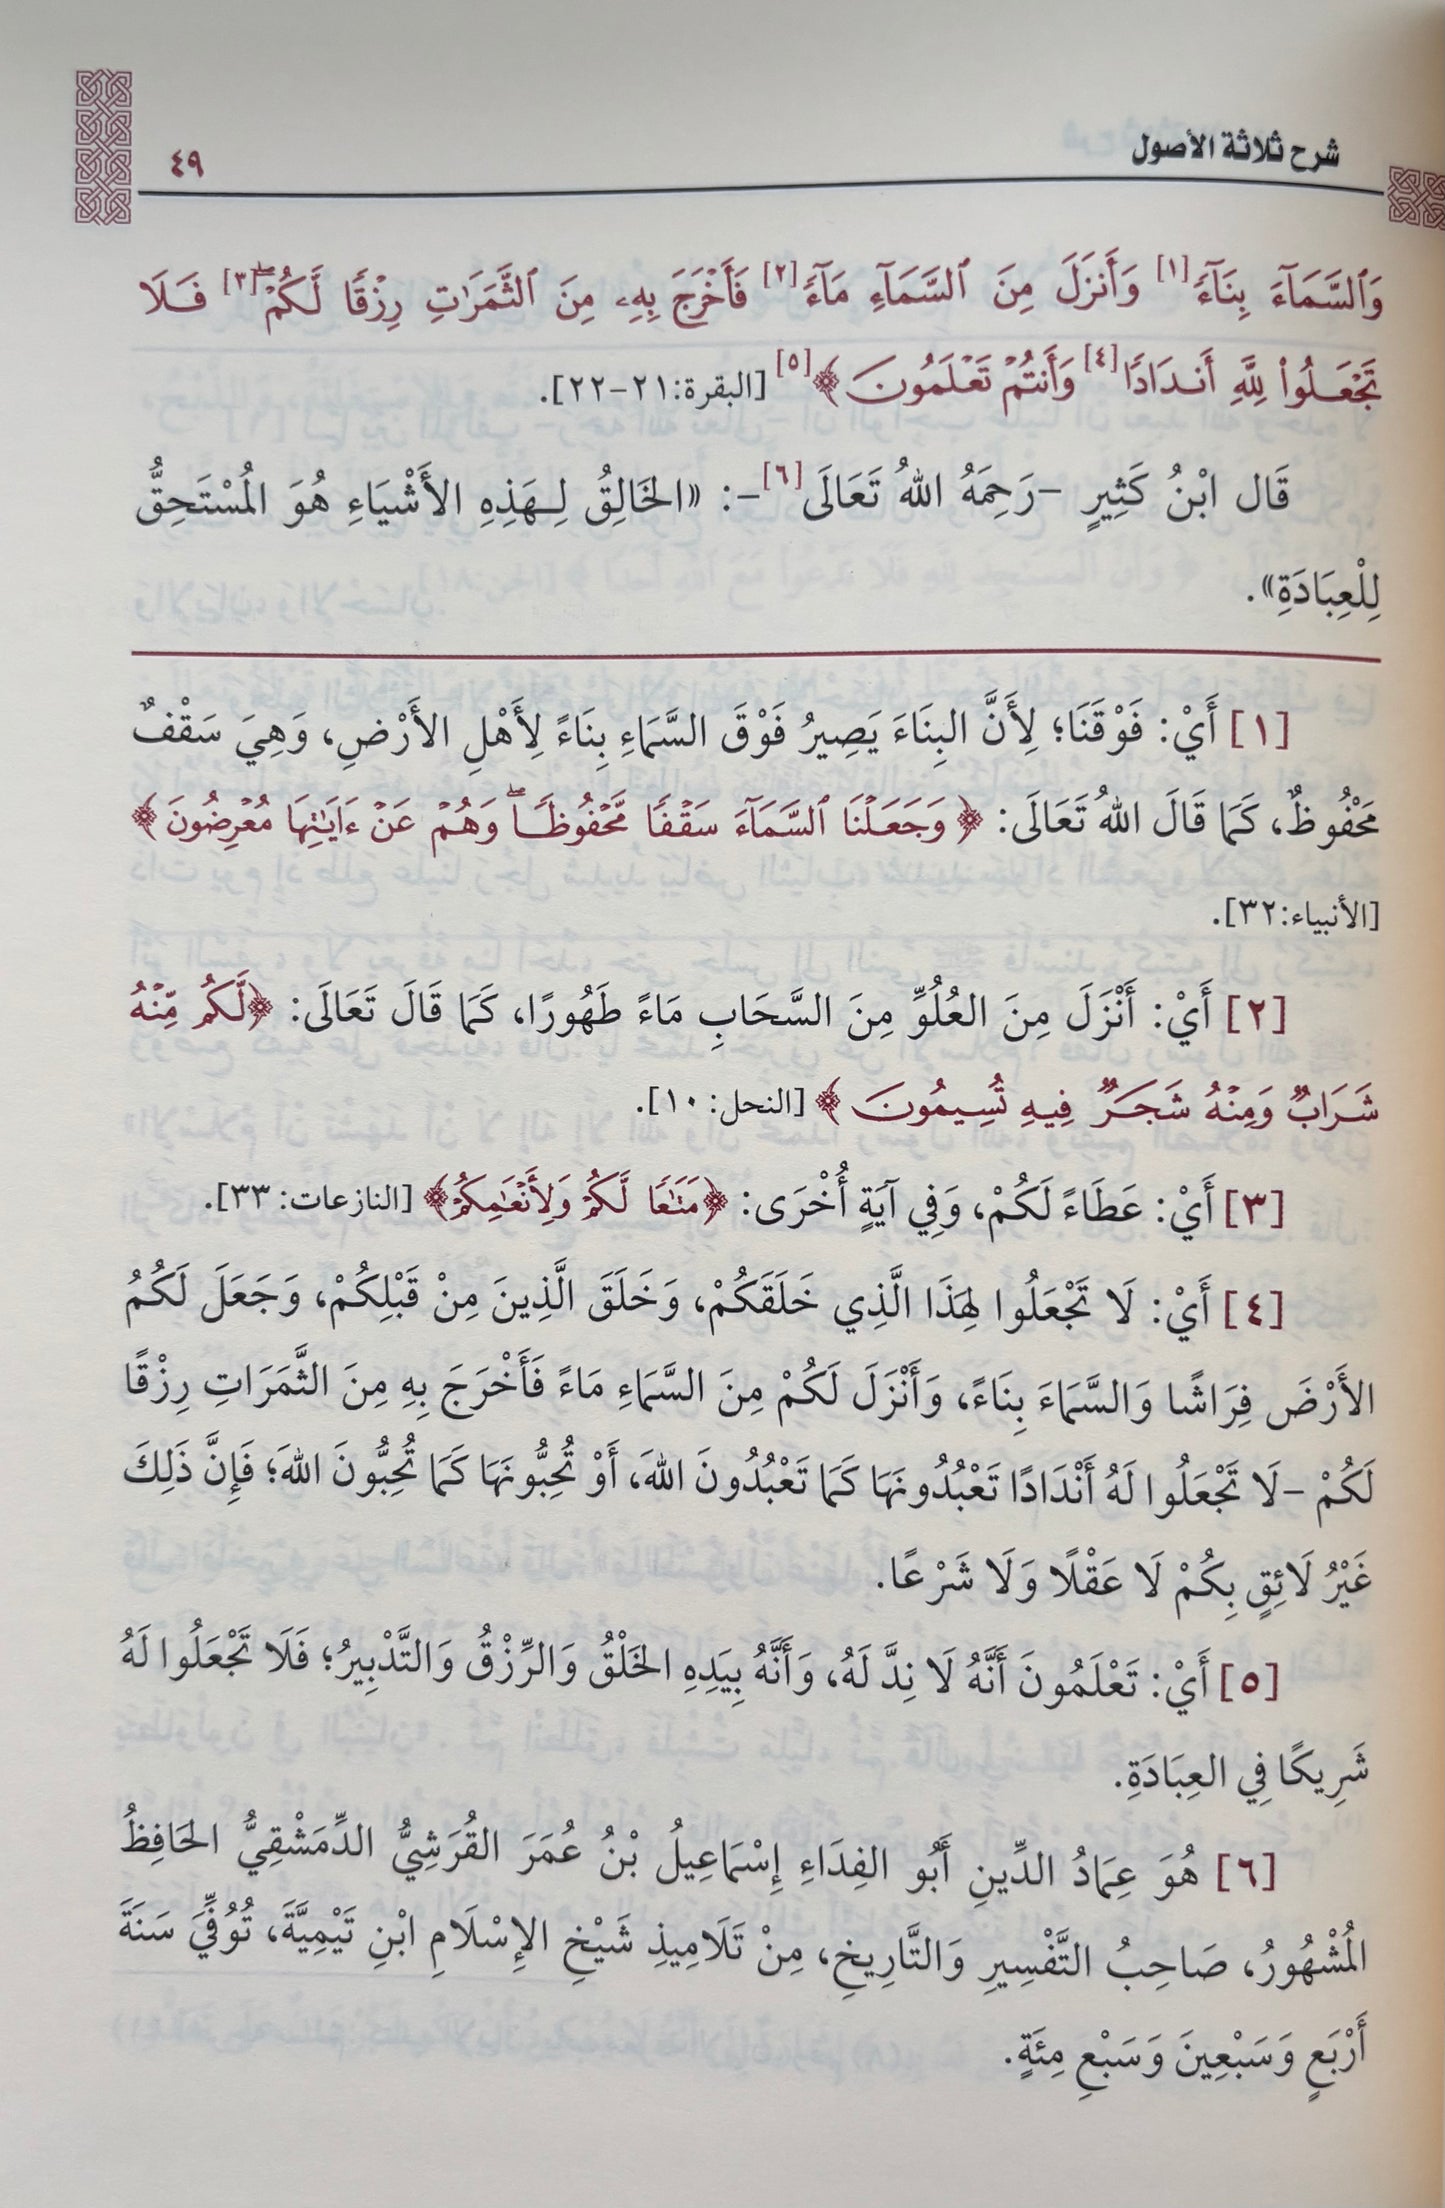 شرح ثلاثة الأصول
٤٩
وَٱلسَّمَآءَ بِنَآءً[١] وَأَنزَلَ مِنَ ٱلسَّمَآءِ مَآءً[٢] فَأَخْرَجَ بِهِۦ مِنَ ٱلثَّمَرَٰتِ رِزْقًا لَّكُمْۖ[٣] فَلَا
تَجْعَلُوا۟ لِلَّهِ أَندَادًا[٤] وَأَنتُمْ تَعْلَمُونَ ﴾[٥] [البقرة:٢١-٢٢].
قَال ابْنُ كَثِيرٍ -رَحِمَهُ اللهُ تَعَالَى[٦]-: «الخَالِقُ لِـهَذِهِ الأَشْيَاءِ هُوَ المُسْتَحِقُّ
لِلْعِبَادَةِ».
[١] أَيْ: فَوْقَنَا؛ لِأَنَّ البِنَاءَ يَصِيرُ فَوْقَ السَّمَاءِ بِنَاءً لِأَهْلِ الأَرْضِ، وَهِيَ سَقْفٌ
مَحْفُوظٌ، كَمَا قَالَ اللهُ تَعَالَى: ﴿ وَجَعَلْنَا ٱلسَّمَآءَ سَقْفًا مَّحْفُوظًاۖ وَهُمْ عَنْ ءَايَٰتِهَا مُعْرِضُونَ﴾
[الأنبياء:٣٢].
[٢] أَيْ: أَنْزَلَ مِنَ العُلُوِّ مِنَ السَّحَابِ مَاءً طَهُورًا، كَمَا قَالَ تَعَالَى: ﴿لَّكُم مِّنْهُ
شَرَابٌ وَمِنْهُ شَجَرٌ فِيهِ تُسِيمُونَ ﴾ [النحل: ١٠].
[٣] أَيْ: عَطَاءً لَكُمْ، وَفِي آيَةٍ أُخْرَى: ﴿مَتَٰعًا لَّكُمْ وَلِأَنْعَٰمِكُمْ﴾ [النازعات: ٣٣].
[٤] أَيْ: لَا تَجْعَلُوا لِهَذَا الَّذِي خَلَقَكُمْ، وَخَلَقَ الَّذِينَ مِنْ قَبْلِكُمْ، وَجَعَلَ لَكُمُ
الأَرْضَ فِرَاشًا وَالسَّمَاءَ بِنَاءً، وَأَنْزَلَ لَكُمْ مِنَ السَّمَاءِ مَاءً فَأَخْرَجَ بِهِ مِنَ الثَّمَرَاتِ رِزْقًا
لَكُمْ -لَا تَجْعَلُوا لَهُ أَنْدَادًا تَعْبُدُونَهَا كَمَا تَعْبُدُونَ اللهَ، أَوْ تُحِبُّونَهَا كَمَا تُحِبُّونَ اللهَ؛ فَإِنَّ ذَلِكَ
غَيْرُ لَائِقٍ بِكُمْ لَا عَقْلًا وَلَا شَرْعًا.
[٥] أَيْ: تَعْلَمُونَ أَنَّهُ لَا نِدَّ لَهُ، وَأَنَّهُ بِيَدِهِ الخَلْقُ وَالرِّزْقُ وَالتَّدْبِيرُ؛ فَلَا تَجْعَلُوا لَهُ
شَرِيكًا فِي العِبَادَةِ.
[٦] هُوَ عِمَادُ الدِّينِ أَبُو الفِدَاءِ إِسْمَاعِيلُ بْنُ عُمَرَ القُرَشِيُّ الدِّمَشْقِيُّ الحَافِظُ
المُشْهُورُ، صَاحِبُ التَّفْسِيرِ وَالتَّارِيخِ، مِنْ تَلَامِيذِ شَيْخِ الإِسْلَامِ ابْنِ تَيْمِيَّةَ، تُوُفِّيَ سَنَةَ
أَرْبَعٍ وَسَبْعِينَ وَسَبْعِ مِئَةٍ.